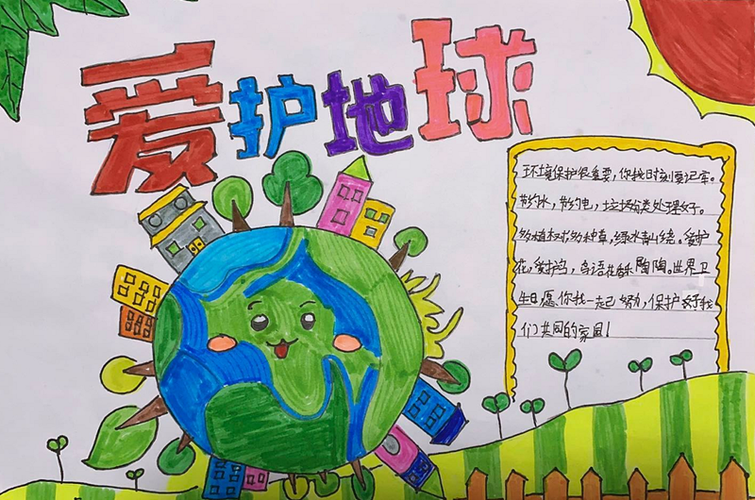 爱护地球
环境保护很重要,你我时刻要记牢。
节约水,节约电,垃圾分类处理好。
多植树多种草,绿水青山绕。爱护
花,爱护鸟,鸟语花香乐陶陶。世界卫
生日愿你我一起努力,保护好我
们共同的家园!